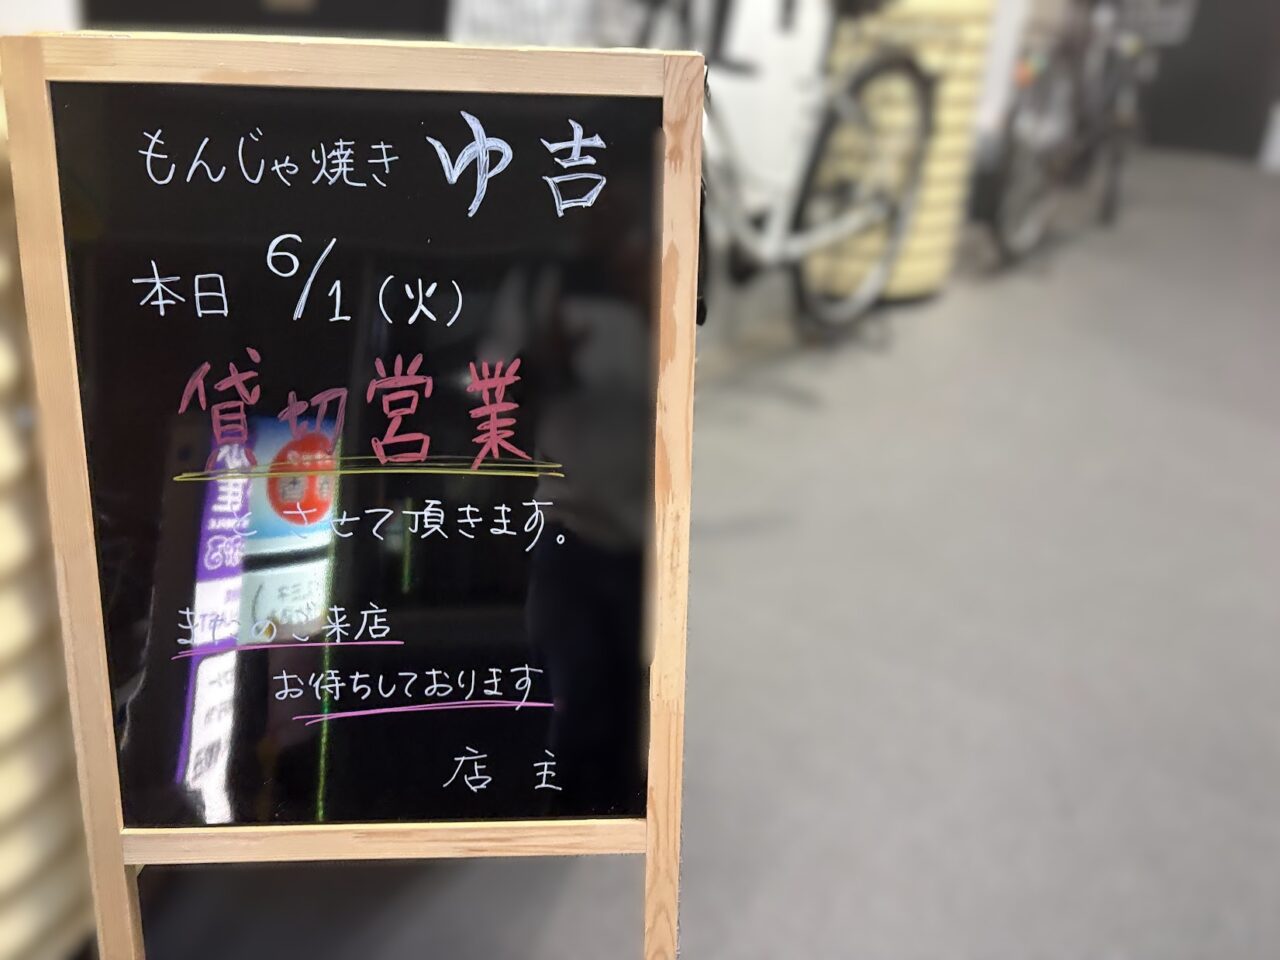 もんじゃ焼き ゆ吉
本日 6/1(火)
貸切営業
とさせて頂きます。
またのご来店
お待ちしております
店主